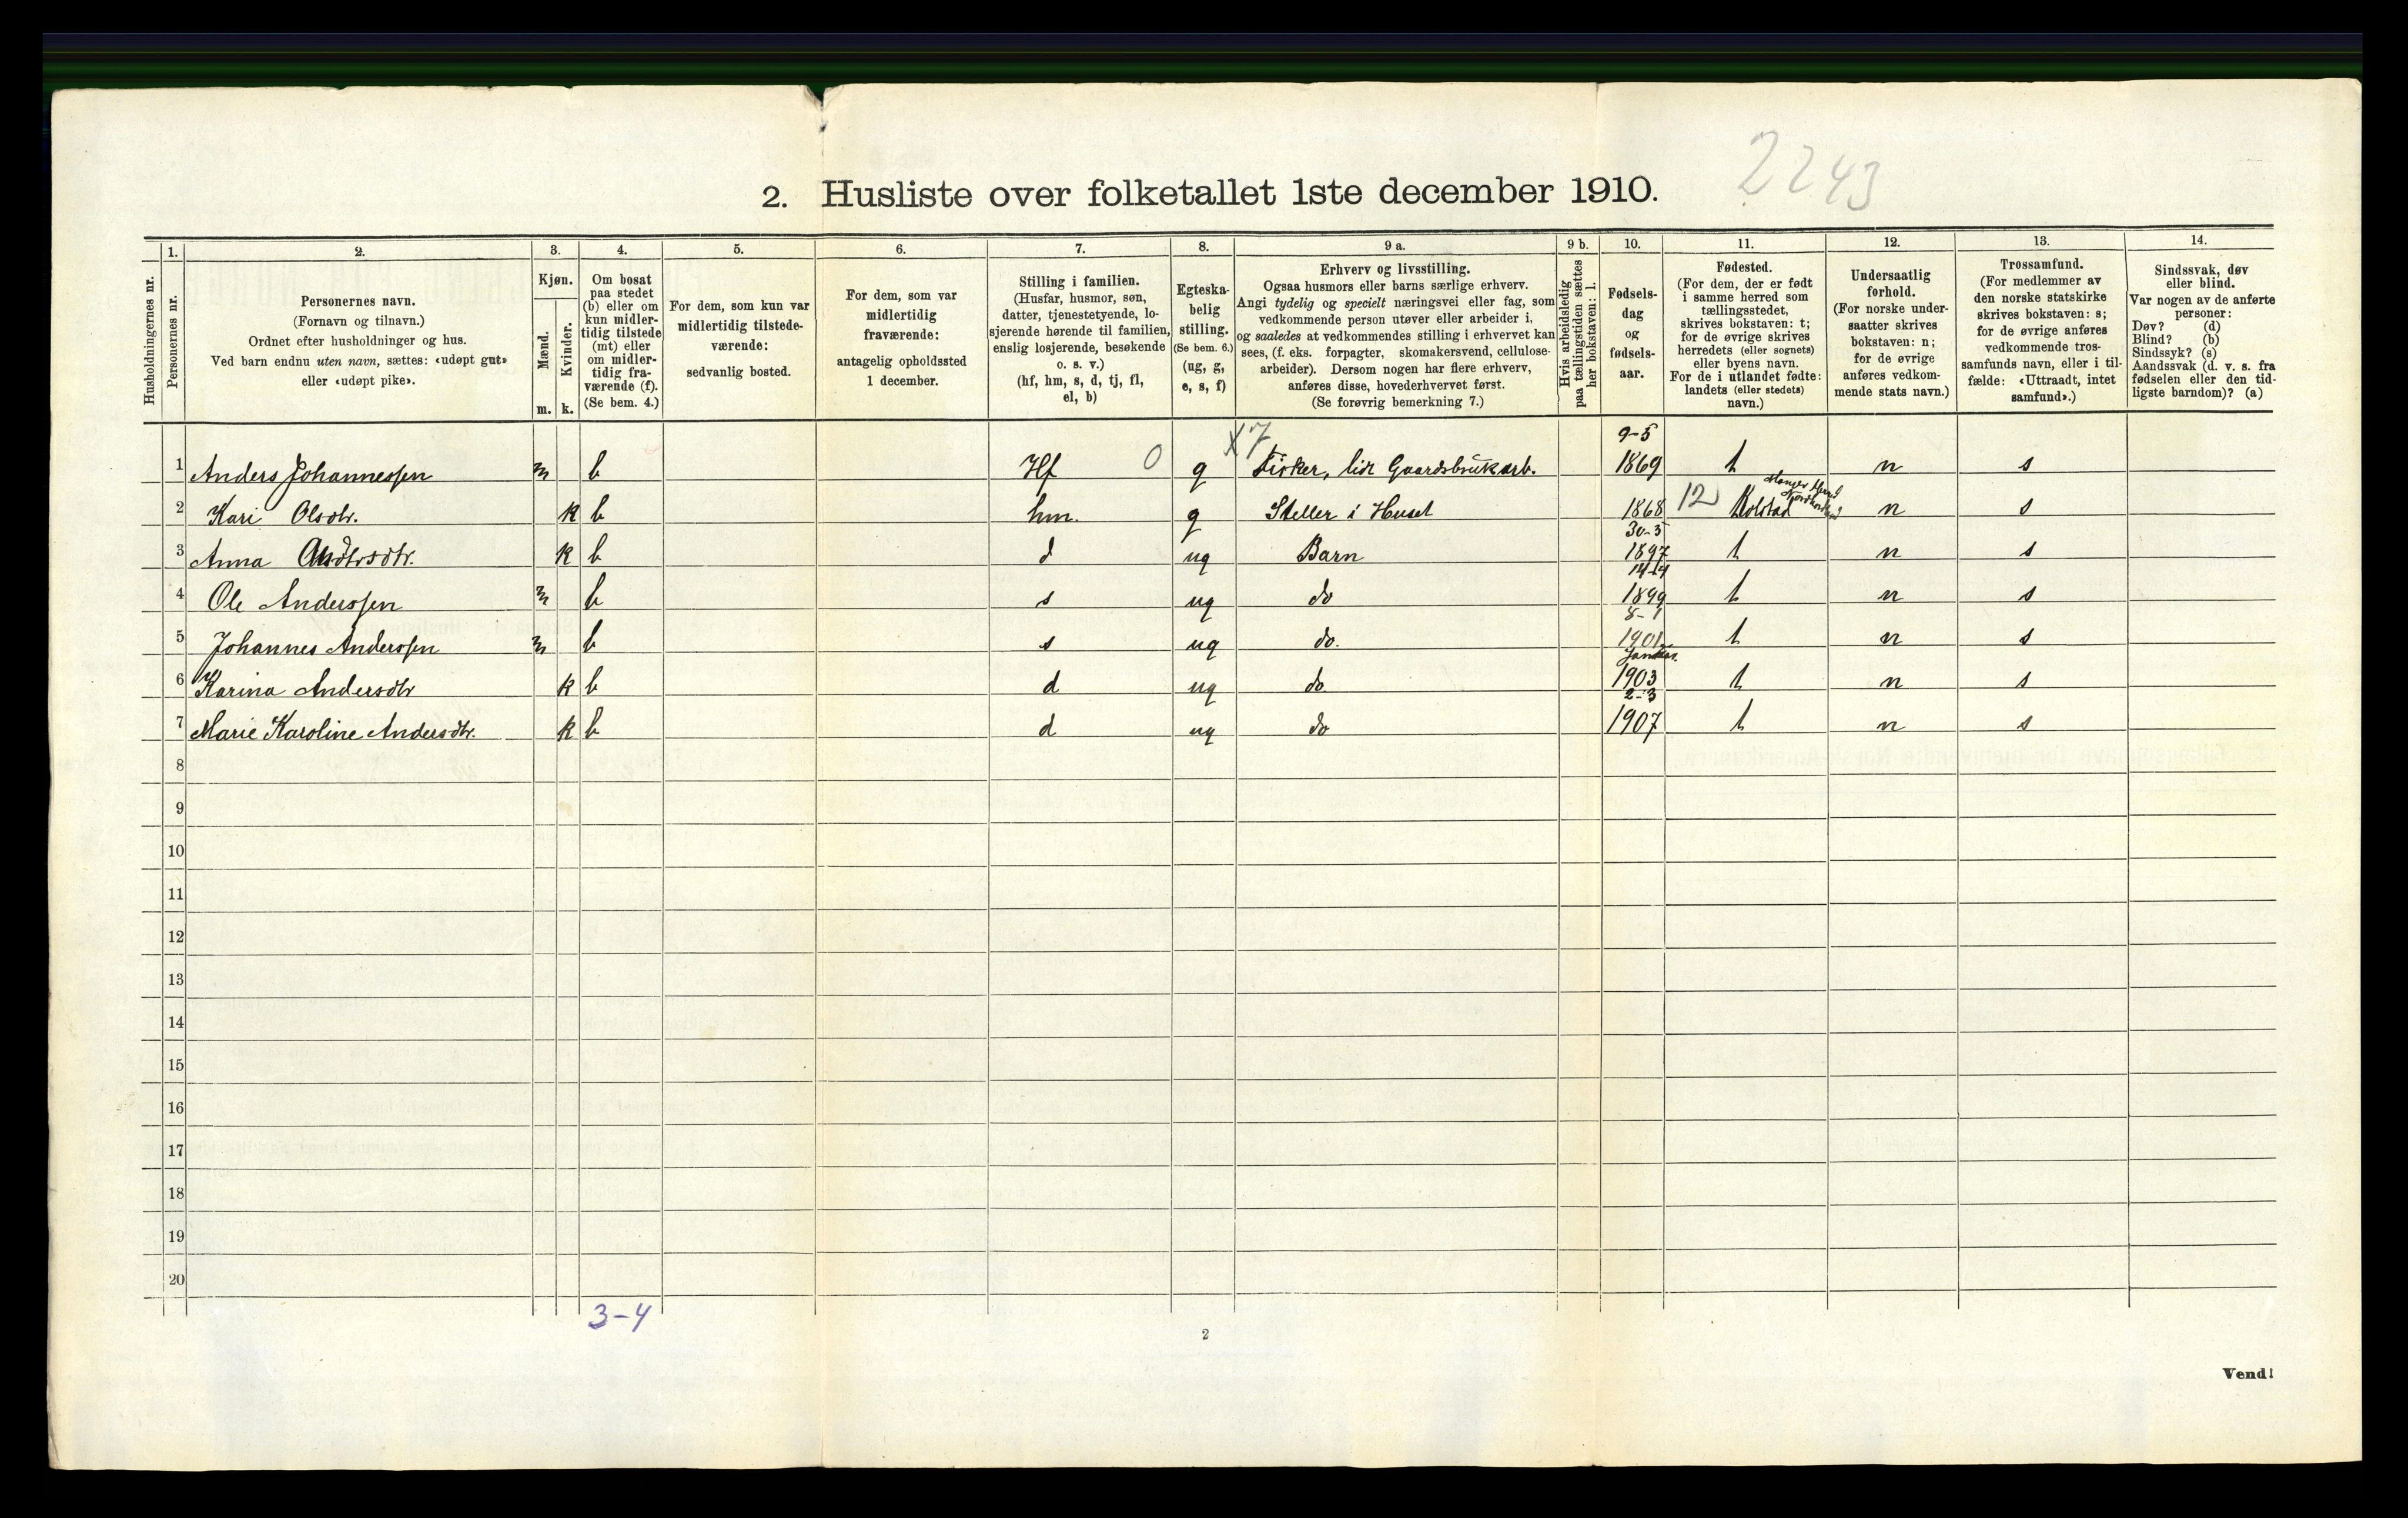 2243
2. Husliste over folketallet 1ste december 1910.
Husholdningernes nr.
1.
Personernes nr.
2.
Personernes navn.
(Fornavn og tilnavn.)
Ordnet efter husholdninger og hus.
Ved barn endnu uten navn, sættes: «udøpt gut»
eller «udøpt pike».
3.
Kjøn.
Mænd.
Kvinder.
m. k.
4.
Om bosat
paa stedet
(b) eller om
kun midler-
tidig tilstede
(mt) eller
om midler-
tidig fra-
værende (f).
(Se bem. 4.)
5.
For dem, som kun var
midlertidig tilstede-
værende:
sedvanlig bosted.
6.
For dem, som var
midlertidig
fraværende:
antagelig opholdssted
1 december.
7.
Stilling i familien.
(Husfar, husmor, søn,
datter, tjenestetyende, lo-
sjerende hørende til familien,
enslig losjerende, besøkende
o. s. v.)
(hf, hm, s, d, tj, fl,
el, b)
8.
Egteska-
belig
stilling.
(Se bem. 6.)
(ug, g,
e, s, f)
9 a.
Erhverv og livsstilling.
Ogsaa husmors eller barns særlige erhverv.
Angi tydelig og specielt næringsvei eller fag, som
vedkommende person utøver eller arbeider i,
og saaledes at vedkommendes stilling i erhvervet kan
sees, (f. eks. forpagter, skomakersvend, cellulose-
arbeider). Dersom nogen har flere erhverv,
anføres disse, hovederhvervet først.
(Se forøvrig bemerkning 7.)
9 b.
Hvis arbeidsledig
paa tællingstiden sættes
her bokstaven: l.
10.
Fødsels-
dag
og
fødsels-
aar.
11.
Fødested.
(For dem, der er født
i samme herred som
tællingsstedet,
skrives bokstaven: t;
for de øvrige skrives
herredets (eller sognets)
eller byens navn.
For de i utlandet fødte:
landets (eller stedets)
navn.)
12.
Undersaatlig
forhold.
(For norske under-
saatter skrives
bokstaven: n;
for de øvrige
anføres vedkom-
mende stats navn.)
13.
Trossamfund.
(For medlemmer av
den norske statskirke
skrives bokstaven: s;
for de øvrige anføres
vedkommende tros-
samfunds navn, eller i til-
fælde: «Uttraadt, intet
samfund».)
14.
Sindssvak, døv
eller blind.
Var nogen av de anførte
personer:
Døv? (d)
Blind? (b)
Sindssyk? (s)
Aandssvak (d. v. s. fra
fødselen eller den tid-
ligste barndom)? (a)
X7 9-5
1 Anders Johannessen m b Hf 0 g Fisker, lidt Gaardsbrukarb. 1869 t n s
2 Kari Olsdtr. k b hm. g Steller i Huset 1868 12 Manger n s
30-5
3 Anna k b d ug Barn 1897 t n s
14-4
4 Ole Anderssen m b s ug do 1899 t n s
8-1
5 Johannes Anderssen m b s ug do. 1901 t n s
6 Karina Andersdtr k b d ug do 1903 t n s
2-3
7 Marie Karoline Andersdtr. k b d ug do 1907 t n s
8
9
10
11
12
13
14
15
16
17
18
19
20
3-4
2
Vend!